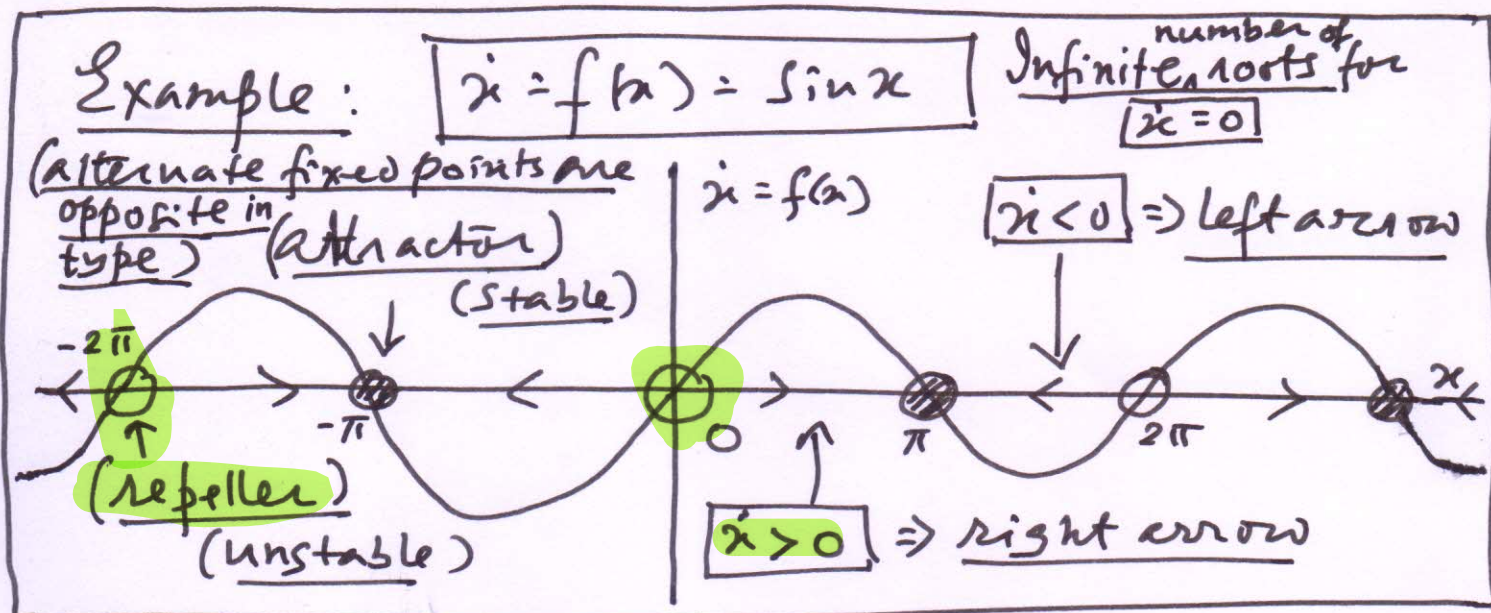 Example :
ẋ = f(x) = sin x
Infinite number of roots for
ẋ = 0
(alternate fixed points are
opposite in
type)
(attractor)
(stable)
ẋ = f(x)
ẋ < 0 => left arrow
-2π
-π
0
π
2π
x
(repeller)
(unstable)
ẋ > 0 => right arrow